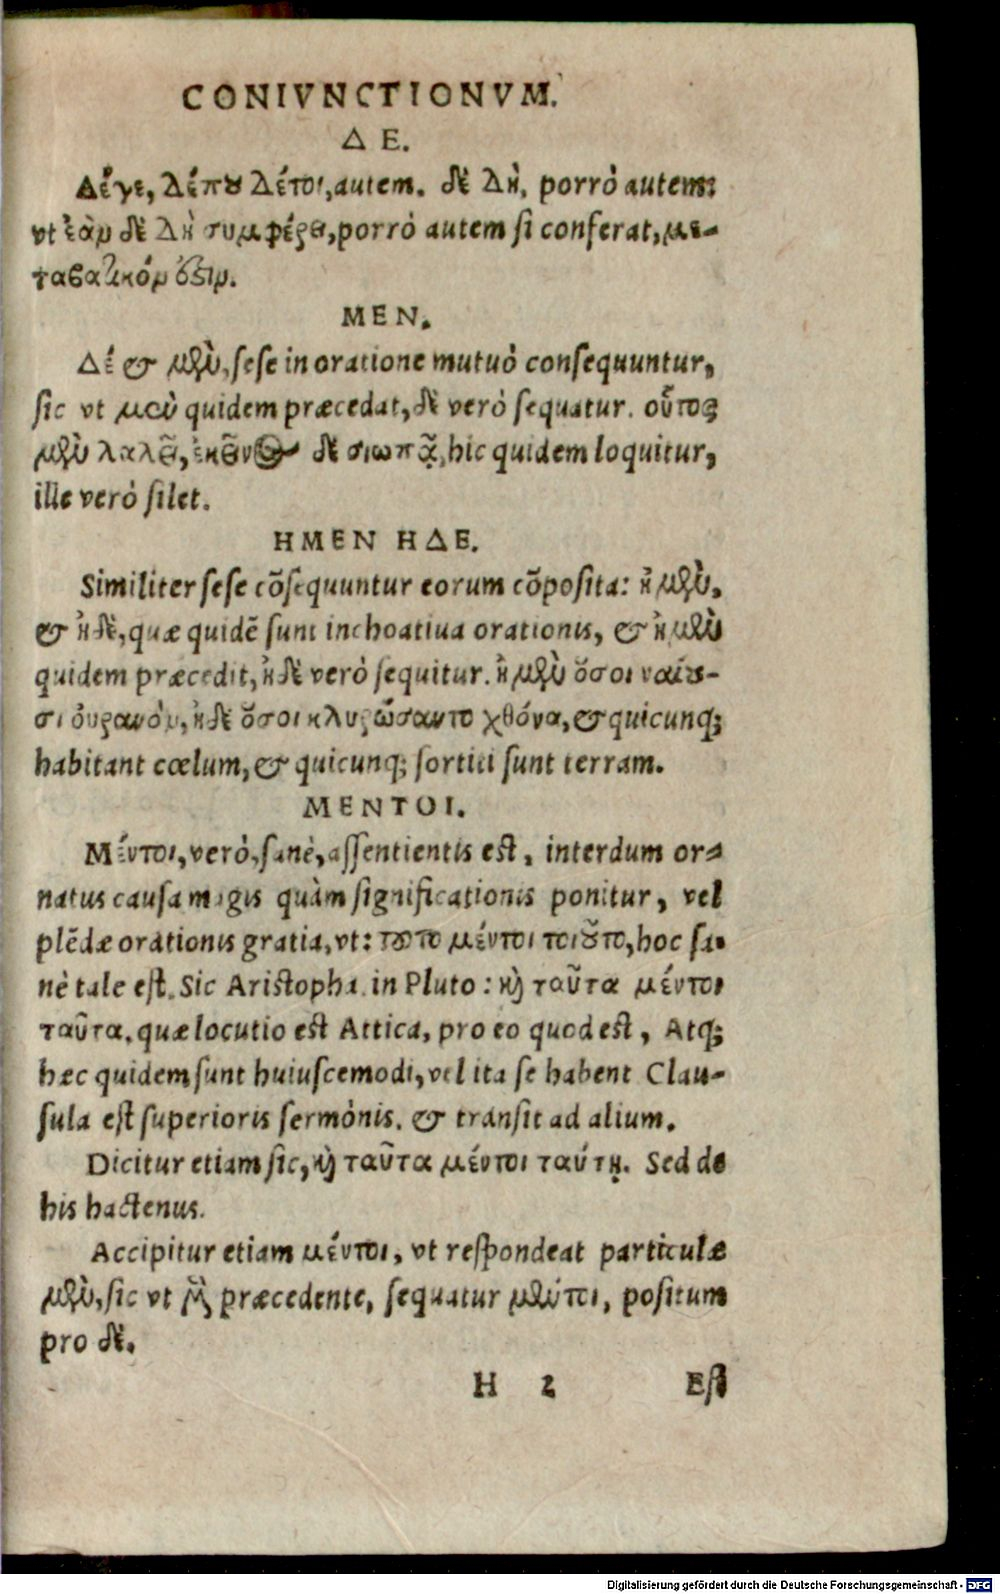 CONIVNCTIONVM.
Δ Ε.
Δέγε, Δέπου Δέτοι, autem. δὲ Δὴ, porrò autem:
vt ἐὰν δὲ Δὴ συμφέρῃ, porrò autem si conferat, με-
ταβατικόν ὅξιν.
ΜΕΝ.
Δέ & μὲν, sese in oratione mutuò consequuntur,
sic vt μὲν quidem præcedat, δὲ verò sequatur. οὗτος
μὲν λαλεῖ, ἐκεῖνος δὲ σιωπᾷ, hic quidem loquitur,
ille verò silet.
ΗΜΕΝ ΗΔΕ.
Similiter sese cõsequuntur eorum cõposita: ἠμὲν,
& ἠδὲ, quæ quidẽ sunt inchoatiua orationis, & ἠμὲν
quidem præcedit, ἠδὲ verò sequitur. ἠμὲν ὅσοι ναίου-
σι οὐρανὸν, ἠδὲ ὅσοι κληρώσαντο χθόνα, & quicunq;
habitant cœlum, & quicunq; sortiti sunt terram.
ΜΕΝΤΟΙ.
Μέντοι, verò, sanè, assentientis est, interdum or-
natus causa magis quàm significationis ponitur, vel
plẽdæ orationis gratia, vt: τοῦτο μέντοι τοιοῦτο, hoc sa-
nè tale est. Sic Aristopha. in Pluto: καὶ ταῦτα μέντοι
ταῦτα. quæ locutio est Attica, pro eo quod est, Atq;
hæc quidem sunt huiuscemodi, vel ita se habent Clau-
sula est superioris sermónis. & transit ad alium.
Dicitur etiam sic, καὶ ταῦτα μέντοι ταύτῃ. Sed de
his hactenus.
Accipitur etiam μέντοι, vt respondeat particulæ
μὲν, sic vt μὲν præcedente, sequatur μέντοι, positum
pro δὲ.
H 2 Est
Digitalisierung gefördert durch die Deutsche Forschungsgemeinschaft - DFG